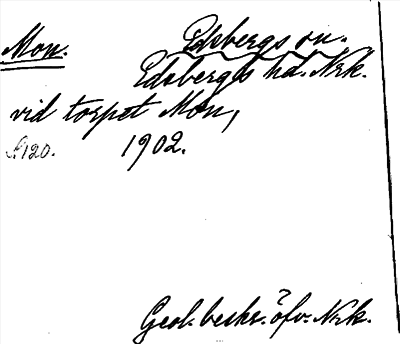 Mon. Edsbergs sn.
Edsbergs hd. Nrk.
vid torpet Mon,
S.120. 1902.
Geol. beskr. öfv. Nrk.